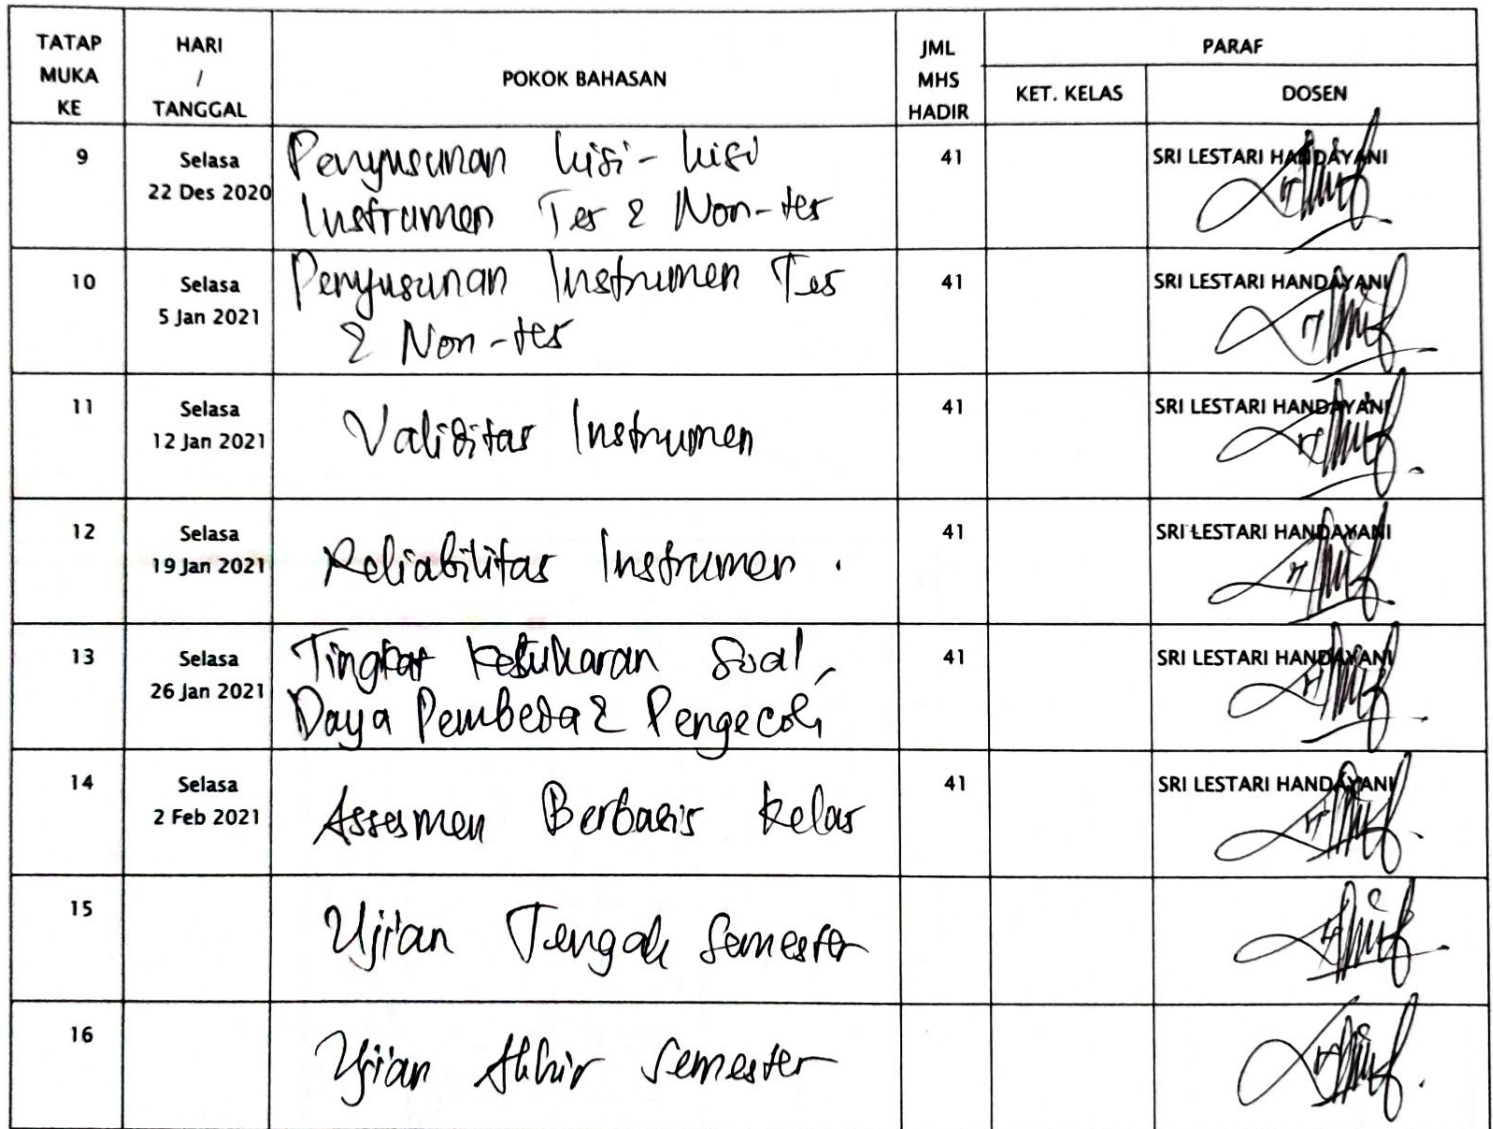 TATAP MUKA KE HARI / TANGGAL POKOK BAHASAN JML MHS HADIR PARAF
KET. KELAS DOSEN
9 Selasa 22 Des 2020 Penyusunan kisi-kisi Instrumen Tes & Non-tes 41 SRI LESTARI HANDAYANI
10 Selasa 5 Jan 2021 Penyusunan Instrumen Tes & Non-tes 41 SRI LESTARI HANDAYANI
11 Selasa 12 Jan 2021 Validitas Instrumen 41 SRI LESTARI HANDAYANI
12 Selasa 19 Jan 2021 Reliabilitas Instrumen . 41 SRI LESTARI HANDAYANI
13 Selasa 26 Jan 2021 Tingkat kesukaran Soal, Daya Pembeda & Pengecoh 41 SRI LESTARI HANDAYANI
14 Selasa 2 Feb 2021 Assesmen Berbasis kelas 41 SRI LESTARI HANDAYANI
15 Ujian Tengah Semester
16 Ujian Akhir Semester